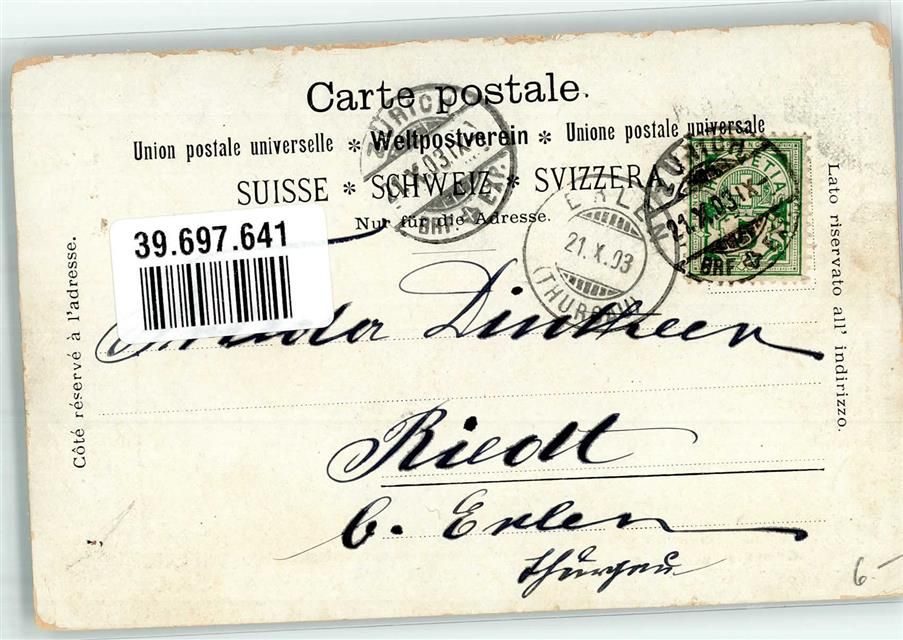 Carte postale.
Union postale universelle * Weltpostverein * Unione postale universale
SUISSE * SCHWEIZ * SVIZZERA
Nur für die Adresse.
Côté réservé à l'adresse.
Lato riservato all' indirizzo.
ZÜRICH
21.X.03.IX
BRF. EXP.
ERLEN
21.X.03
(THURGAU)
ZÜRICH
21.X.03.IX
BRF. EXP.
HELVETIA
5
39.697.641
Riedt
b. Erlen
Thurgau
6-